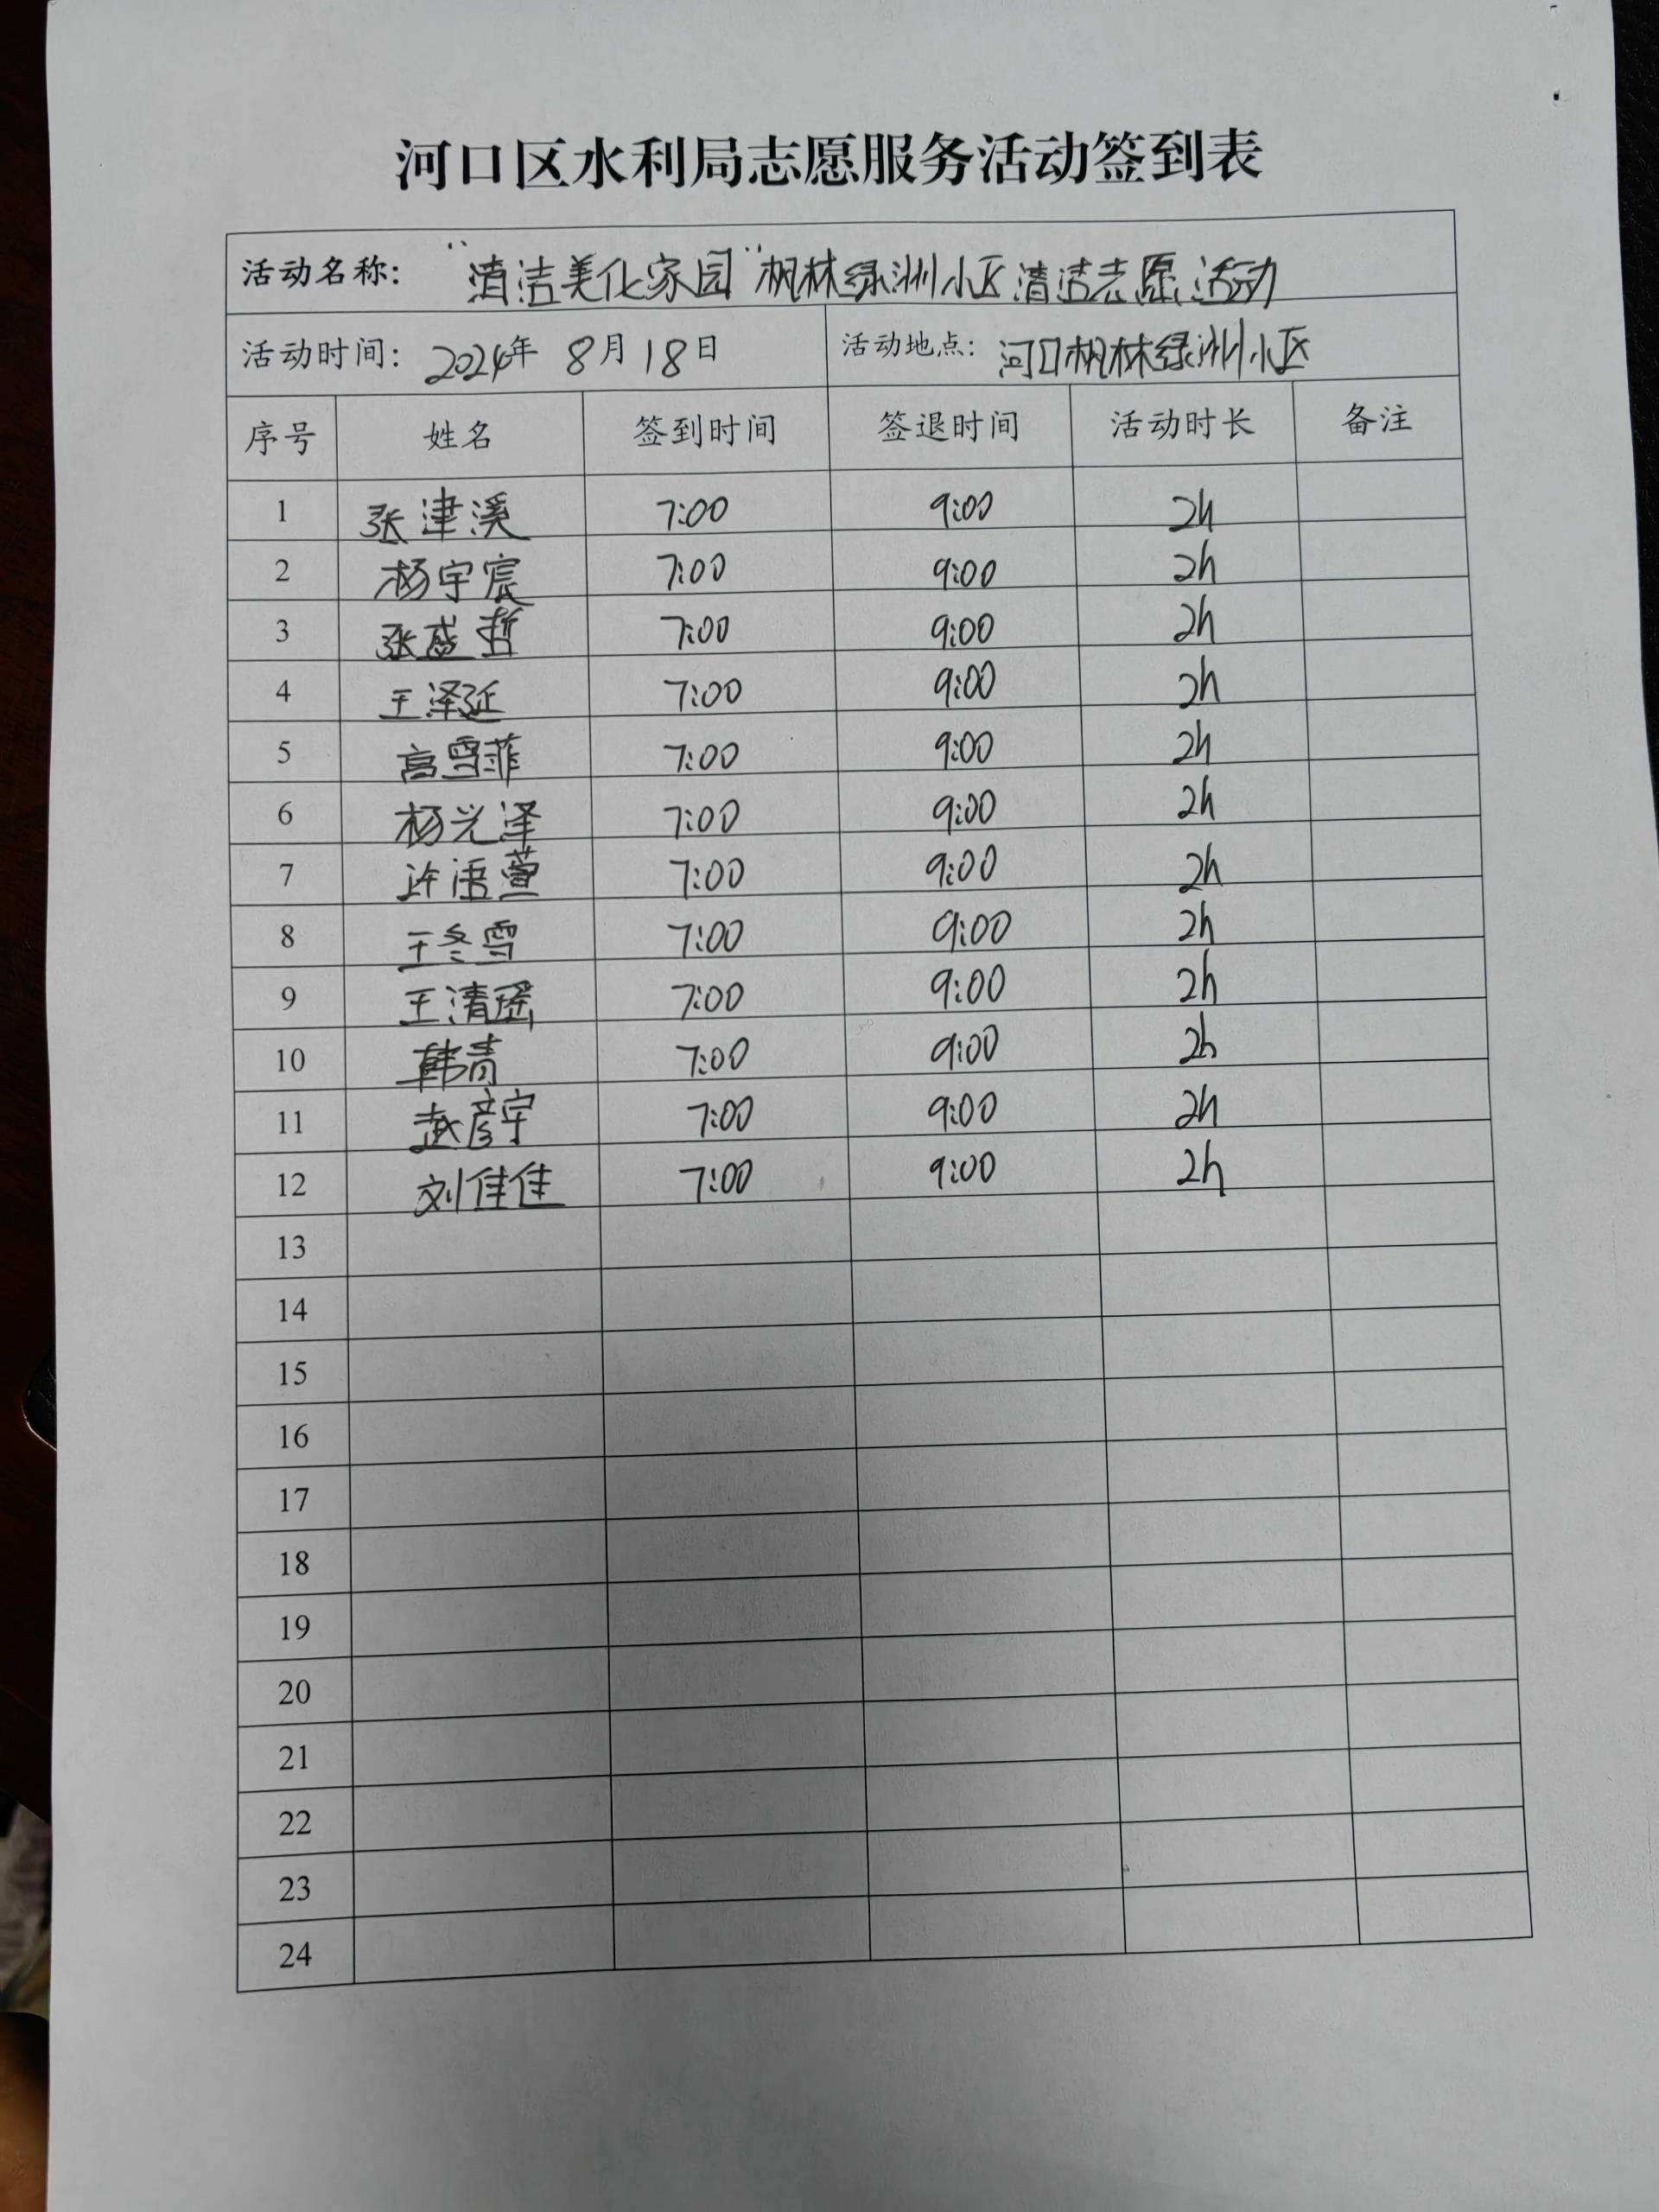 河口区水利局志愿服务活动签到表
活动名称: "清洁美化家园"枫林绿洲小区清洁志愿活动
活动时间: 2024年 8月 18日 活动地点: 河口枫林绿洲小区
序号 姓名 签到时间 签退时间 活动时长 备注
1 张津溪 7:00 9:00 2h
2 杨宇宸 7:00 9:00 2h
3 张盛哲 7:00 9:00 2h
4 王泽延 7:00 9:00 2h
5 高雪菲 7:00 9:00 2h
6 杨光泽 7:00 9:00 2h
7 许语萱 7:00 9:00 2h
8 王冬雪 7:00 9:00 2h
9 王清瑶 7:00 9:00 2h
10 韩青 7:00 9:00 2h
11 赵彦宇 7:00 9:00 2h
12 刘佳佳 7:00 9:00 2h
13
14
15
16
17
18
19
20
21
22
23
24